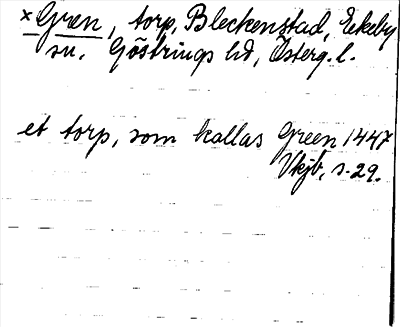 × Gren, torp, Bleckenstad, Ekeby
sn. Göstrings hd, Österg. l.
et torp, som kallas Green 1447
Vkjb, s. 29.